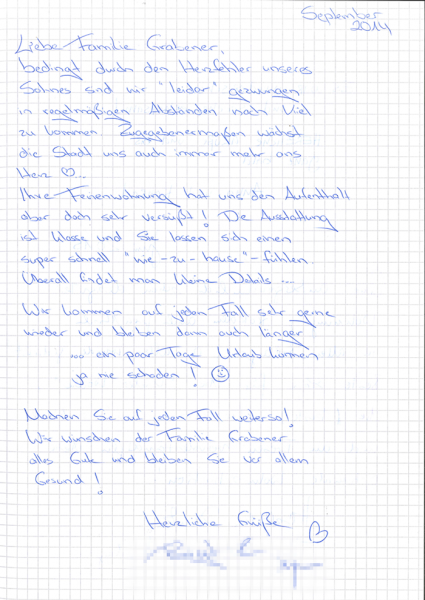 September
2014
Liebe Familie Grabener,
bedingt durch den Herzfehler unseres
Sohnes sind wir "leider" gezwungen
in regelmäßigen Abständen nach Kiel
zu kommen. Zugegebenermaßen wächst
die Stadt uns auch immer mehr ans
Herz ♡...
Ihre Ferienwohnung hat uns den Aufenthalt
aber doch sehr versüßt! Die Ausstattung
ist klasse und Sie lassen sich einen
super schnell "wie-zu-hause"-fühlen.
Überall findet man kleine Details ....
Wir kommen auf jeden Fall sehr gerne
wieder und bleiben dann auch länger
... ein paar Tage Urlaub können
ja nie schaden! ☺
Machen Sie auf jeden Fall weiterso!
Wir wünschen der Familie Grabener
alles Gute und bleiben Sie vor allem
Gesund!
Herzliche Grüße
♡